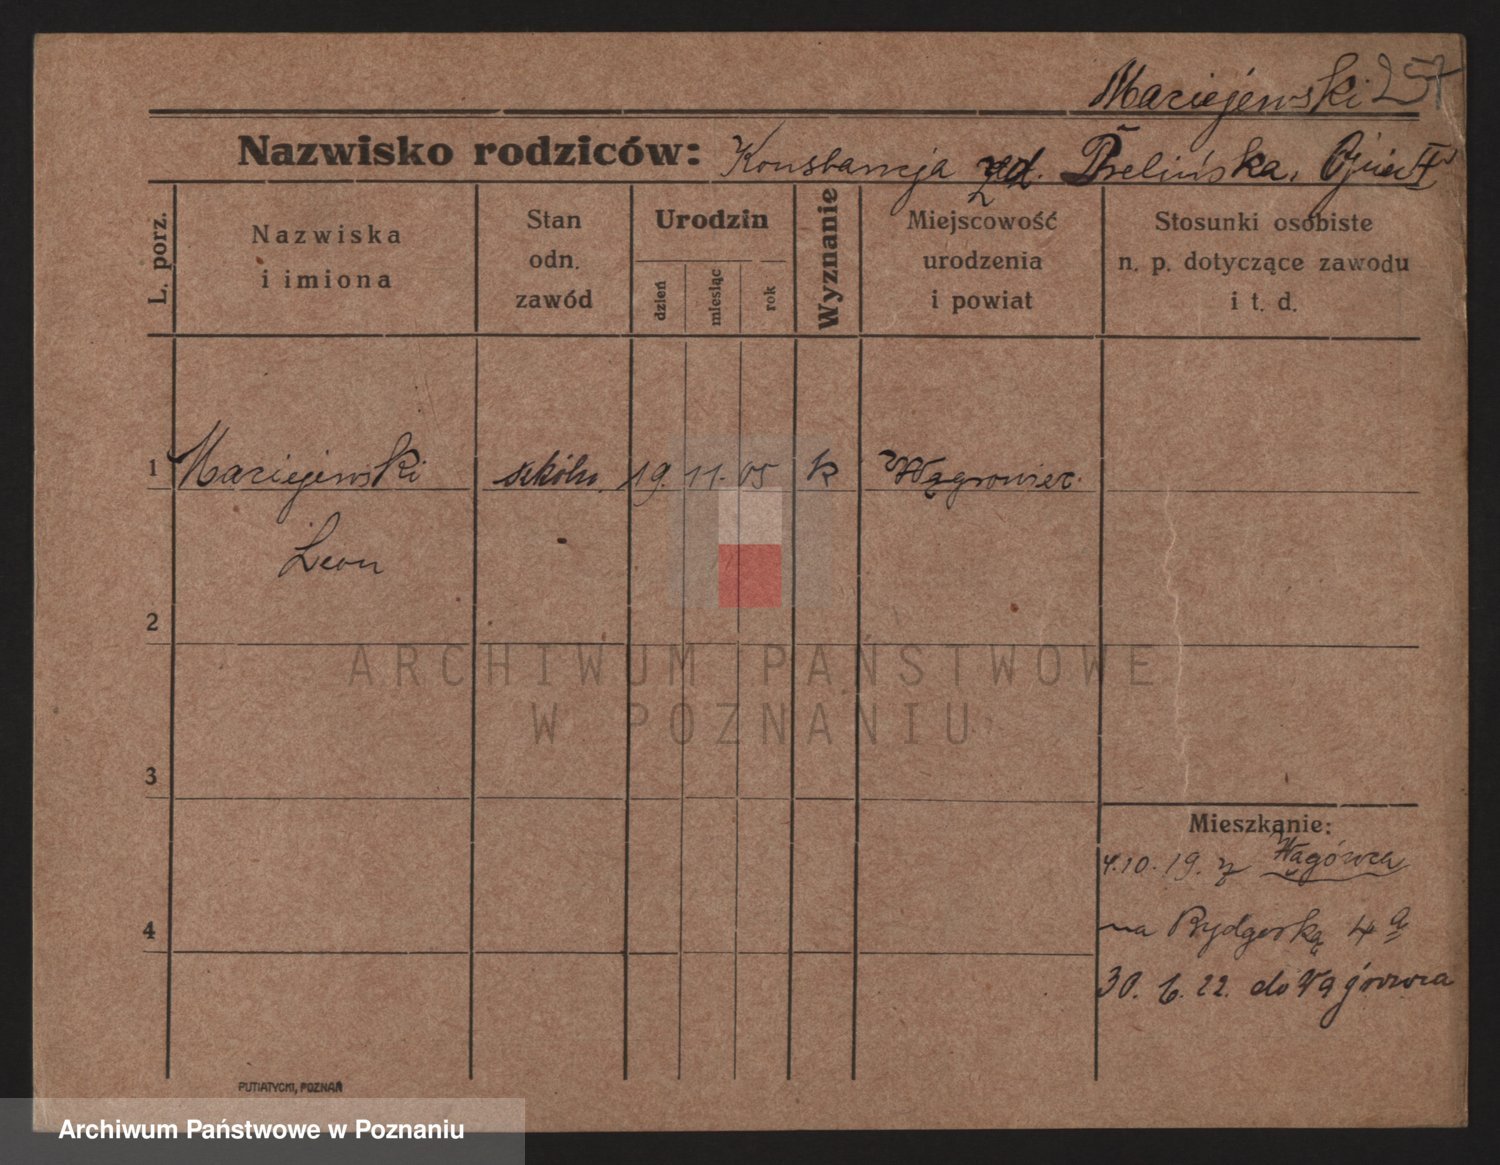 Maciejewski 257
Nazwisko rodziców: Konstancja Prelińska. Ojciec †
L. porz.
Nazwiska
i imiona
Stan
odn.
zawód
Urodzin
dzień
miesiąc
rok
Wyznanie
Miejscowość
urodzenia
i powiat
Stosunki osobiste
n. p. dotyczące zawodu
i t. d.
1 Maciejewski szkoln. 19. 11. 05 k Wągrowiec.
Leon
2
ARCHIWUM PAŃSTWOWE
W POZNANIU
3
Mieszkanie:
4.10.19. z
na Bydgoską 4a
4
30. 6. 22. do Wągrowca
PUTIATYCKI, POZNAŃ
Archiwum Państwowe w Poznaniu